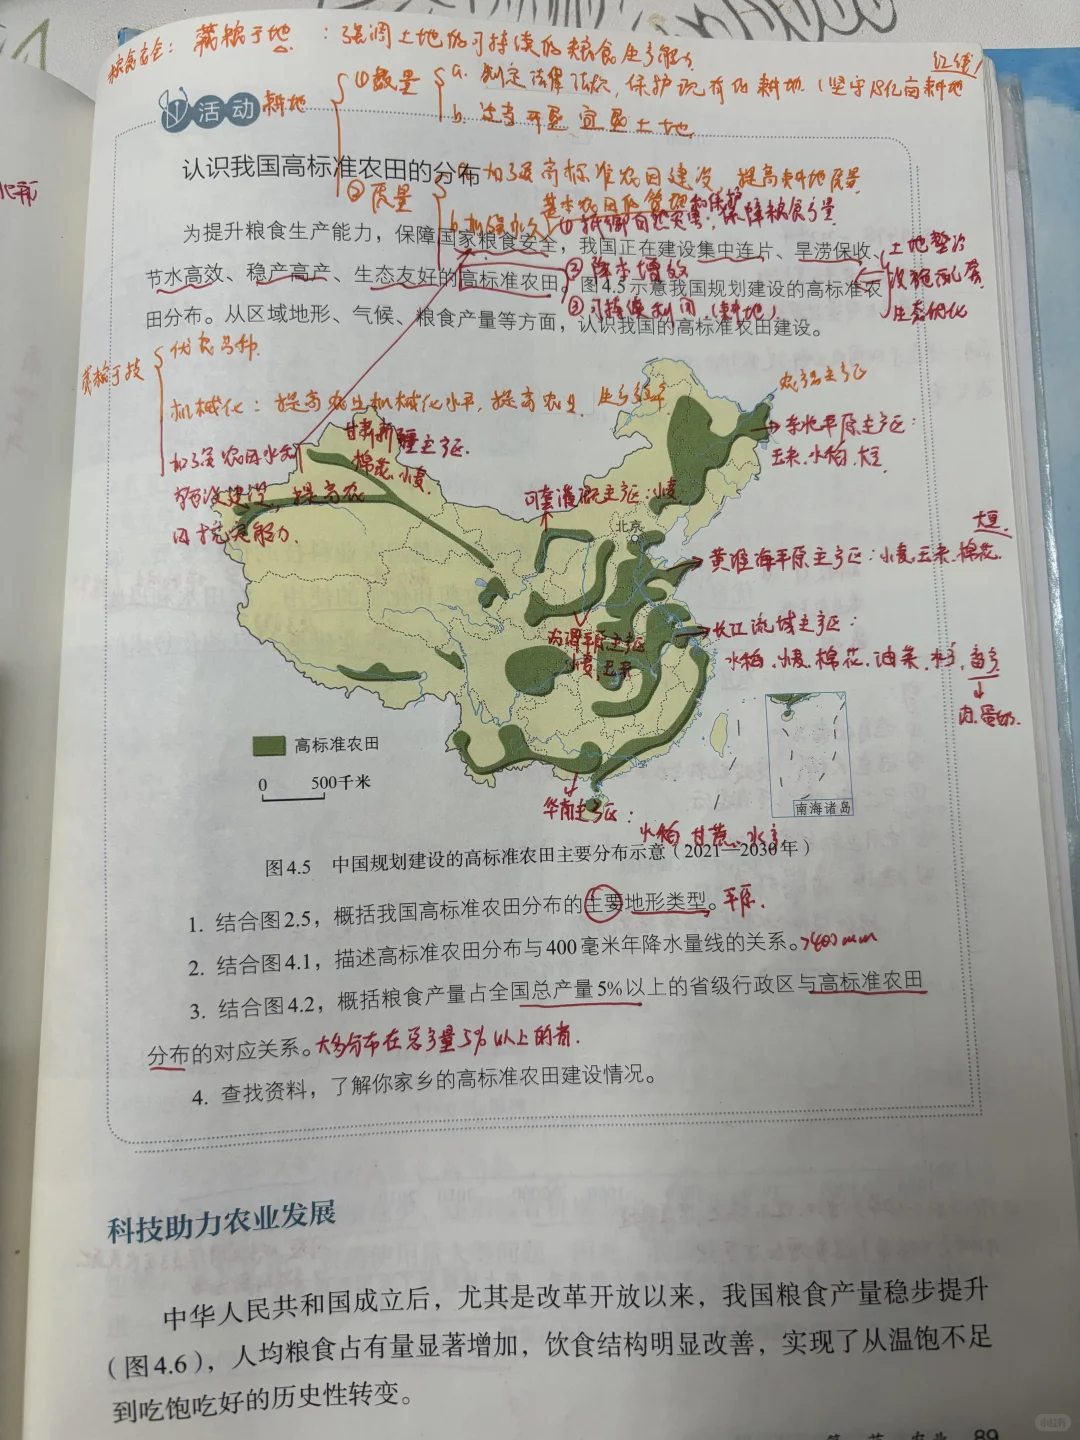 粮食安全：藏粮于地：强调土地的可持续的粮食生产能力
红线
①数量
a. 制定法律法规，保护现有的耕地（坚守18亿亩耕地
b. 适当开垦宜垦土地
活动
耕地
认识我国高标准农田的分布
加强高标准农田建设，提高耕地质量
②质量
基本农田的管理和保护
①抵御自然灾害，保障粮食产量
为提升粮食生产能力，保障国家粮食安全，我国正在建设集中连片、旱涝保收、
土地整治
节水高效、稳产高产、生态友好的高标准农田。图4.5示意我国规划建设的高标准农
②降本增效
设施配套
田分布。从区域地形、气候、粮食产量等方面，认识我国的高标准农田建设。
③可持续利用（耕地）
生态优化
藏粮于技
优农品种
机械化：提高农业机械化水平，提高农业生产效率
加强农田水利
设施建设，提高农
田抗灾能力.
甘肃新疆主产区.
棉花、小麦.
农产品主产区
东北平原主产区：
玉米、水稻、大豆
河套灌区主产区：小麦
北京
大豆.
黄淮海平原主产区：小麦、玉米、棉花.
长江流域主产区：
水稻、小麦、棉花、油菜、水产、畜产
肉、蛋奶.
汾渭平原主产区
小麦、玉米
高标准农田
0 500千米
南海诸岛
华南主产区：
水稻、甘蔗、水产
图4.5 中国规划建设的高标准农田主要分布示意（2021—2030年）
1. 结合图2.5，概括我国高标准农田分布的主要地形类型。平原.
2. 结合图4.1，描述高标准农田分布与400毫米年降水量线的关系。>400mm
3. 结合图4.2，概括粮食产量占全国总产量5%以上的省级行政区与高标准农田
分布的对应关系。大多分布在总产量5%以上的省.
4. 查找资料，了解你家乡的高标准农田建设情况。
科技助力农业发展
中华人民共和国成立后，尤其是改革开放以来，我国粮食产量稳步提升
（图4.6），人均粮食占有量显著增加，饮食结构明显改善，实现了从温饱不足
到吃饱吃好的历史性转变。
89
小红书